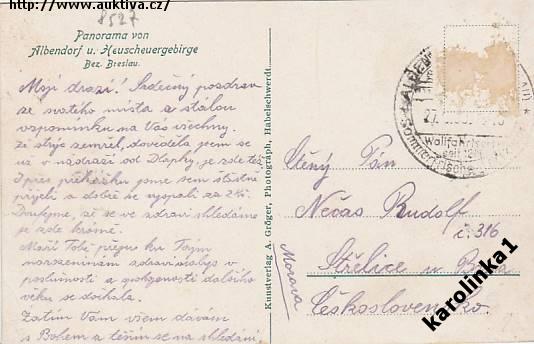 http://www.auktiva.cz/
8527
Panorama von
Albendorf u. Heuscheuergebirge
Bez. Breslau.
Moji drazí! Srdečný pozdrav
ze svatého místa a stálou
vzpomínku na Vás všechny.
že strýc zemřel, dověděla jsem se
už v nádraží od Dlapky, je zde též
I přes překážku jsme sem šťastně
přijeli a dobře se vyspali za 2½
Doufejme, že se ve zdraví shledáme
je zde krásně.
Maři Tobě přeju ku Tvým
narozeninám zdraví abys v
poslušnosti a dalšího
věku se dočkala.
Zatím Vám všem dávám
s Bohem a těším se na shledání
Kunstverlag A. Gröger, Photograph, Habelschwerdt.
ALBEN
27.
Wallfahrts
Sommerfrische
Ctěný Pán
Nečas Rudolf
č. 316
Střelice u Brna
Morava
Československo.
karolinka1